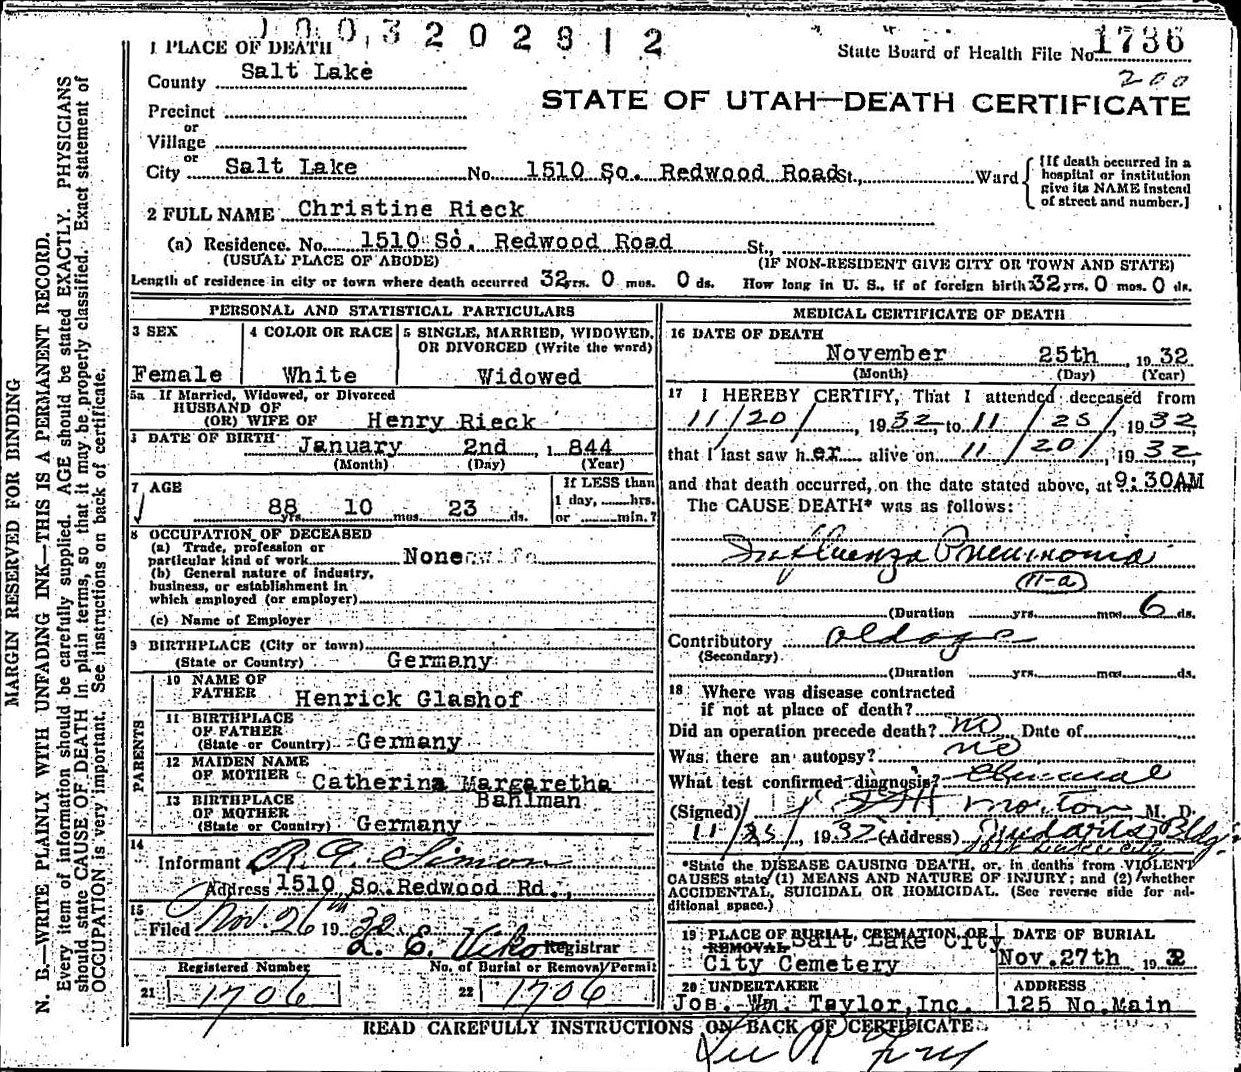 1003202812
1 PLACE OF DEATH
State Board of Health File No. 1736
County Salt Lake
200
STATE OF UTAH—DEATH CERTIFICATE
Precinct
or
Village
or
City Salt Lake No. 1510 So. Redwood Road St., Ward
[If death occurred in a
hospital or institution
give its NAME instead
of street and number.]
2 FULL NAME Christine Rieck
(a) Residence. No. 1510 So. Redwood Road St.,
(USUAL PLACE OF ABODE) (IF NON-RESIDENT GIVE CITY OR TOWN AND STATE)
Length of residence in city or town where death occurred 32 yrs. 0 mos. 0 ds. How long in U. S., if of foreign birth 32 yrs. 0 mos. 0 ds.
PERSONAL AND STATISTICAL PARTICULARS
3 SEX
Female
4 COLOR OR RACE
White
5 SINGLE, MARRIED, WIDOWED,
OR DIVORCED (Write the word)
Widowed
5a If Married, Widowed, or Divorced
HUSBAND OF
(OR) WIFE OF Henry Rieck
DATE OF BIRTH January 2nd, 1844
(Month) (Day) (Year)
7 AGE
88 yrs. 10 mos. 23 ds.
If LESS than
1 day, ......hrs.
or ......min.?
8 OCCUPATION OF DECEASED
(a) Trade, profession or
particular kind of work None
(b) General nature of industry,
business, or establishment in
which employed (or employer)
(c) Name of Employer
9 BIRTHPLACE (City or town)
(State or Country) Germany
PARENTS
10 NAME OF
FATHER Henrick Glashof
11 BIRTHPLACE
OF FATHER
(State or Country) Germany
12 MAIDEN NAME
OF MOTHER Catherina Margaretha
Bahlman
13 BIRTHPLACE
OF MOTHER
(State or Country) Germany
14
Informant R. G. Simon
Address 1510 So. Redwood Rd.,
15
Filed Nov. 26th 1932
L. E. Viko Registrar
Registered Number No. of Burial or Removal Permit
21 1706 22 1706
MEDICAL CERTIFICATE OF DEATH
16 DATE OF DEATH
November 25th 1932
(Month) (Day) (Year)
17 I HEREBY CERTIFY, That I attended deceased from
11/20/, 1932, to 11/25/, 1932
that I last saw her alive on 11/20/, 1932,
and that death occurred, on the date stated above, at 9:30AM
The CAUSE DEATH* was as follows:
Influenza Pneumonia
11-a
(Duration yrs. mos. 6 ds.
Contributory Old age
(Secondary)
(Duration yrs. mos. ds.
18 Where was disease contracted
if not at place of death?
Did an operation precede death? no Date of
Was there an autopsy? no
What test confirmed diagnosis?
(Signed) Morton M. D.
11/25/, 1932 (Address) Bldg.
Salt Lake City
*State the DISEASE CAUSING DEATH, or, in deaths from VIOLENT
CAUSES state (1) MEANS AND NATURE OF INJURY; and (2) whether
ACCIDENTAL, SUICIDAL OR HOMICIDAL. (See reverse side for ad-
ditional space.)
19 PLACE OF BURIAL, CREMATION, OR
REMOVAL Salt Lake City
City Cemetery
DATE OF BURIAL
Nov. 27th 1932
20 UNDERTAKER
Jos. Wm. Taylor, Inc.
ADDRESS
125 No. Main
READ CAREFULLY INSTRUCTIONS ON BACK OF CERTIFICATE
MARGIN RESERVED FOR BINDING
N. B.—WRITE PLAINLY WITH UNFADING INK—THIS IS A PERMANENT RECORD.
Every item of information should be carefully supplied. AGE should be stated EXACTLY. PHYSICIANS
should state CAUSE OF DEATH in plain terms, so that it may be properly classified. Exact statement of
OCCUPATION is very important. See instructions on back of certificate.